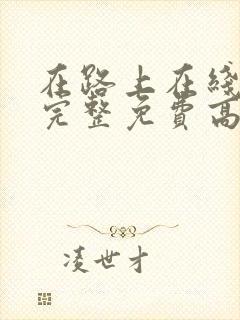 在路上在线
完整免费高
凌世才